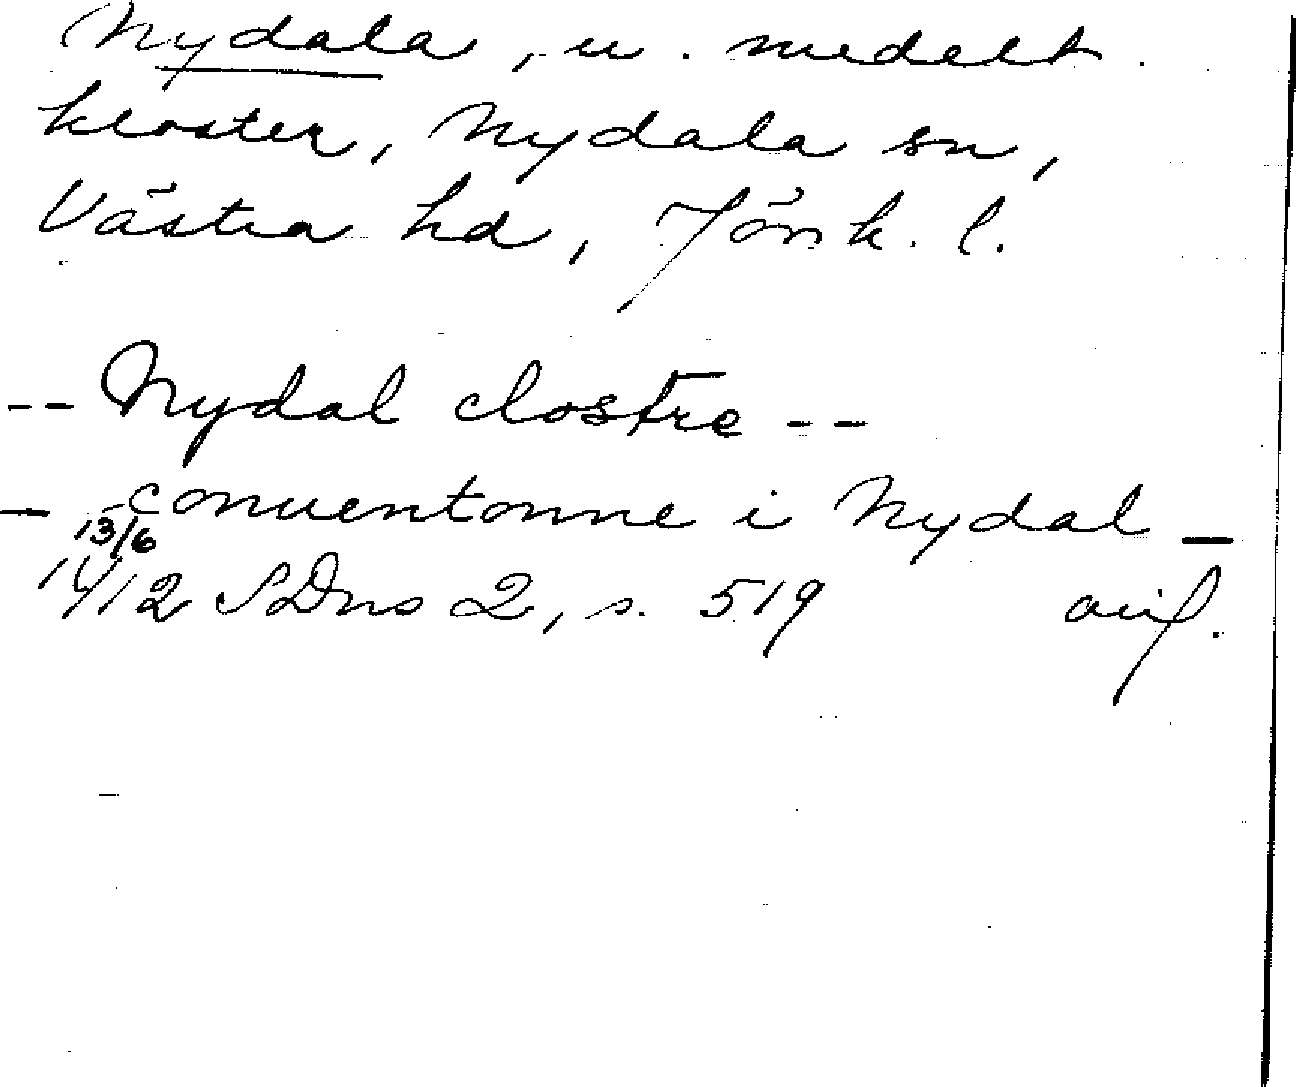 Nydala, u. medelt.
kloster, Nydala sn,
Västra hd, Jönk. l.
-- Nydal clostre --
- conuentonne i Nydal -
13/6
1412 SDns 2, s. 519 avs.